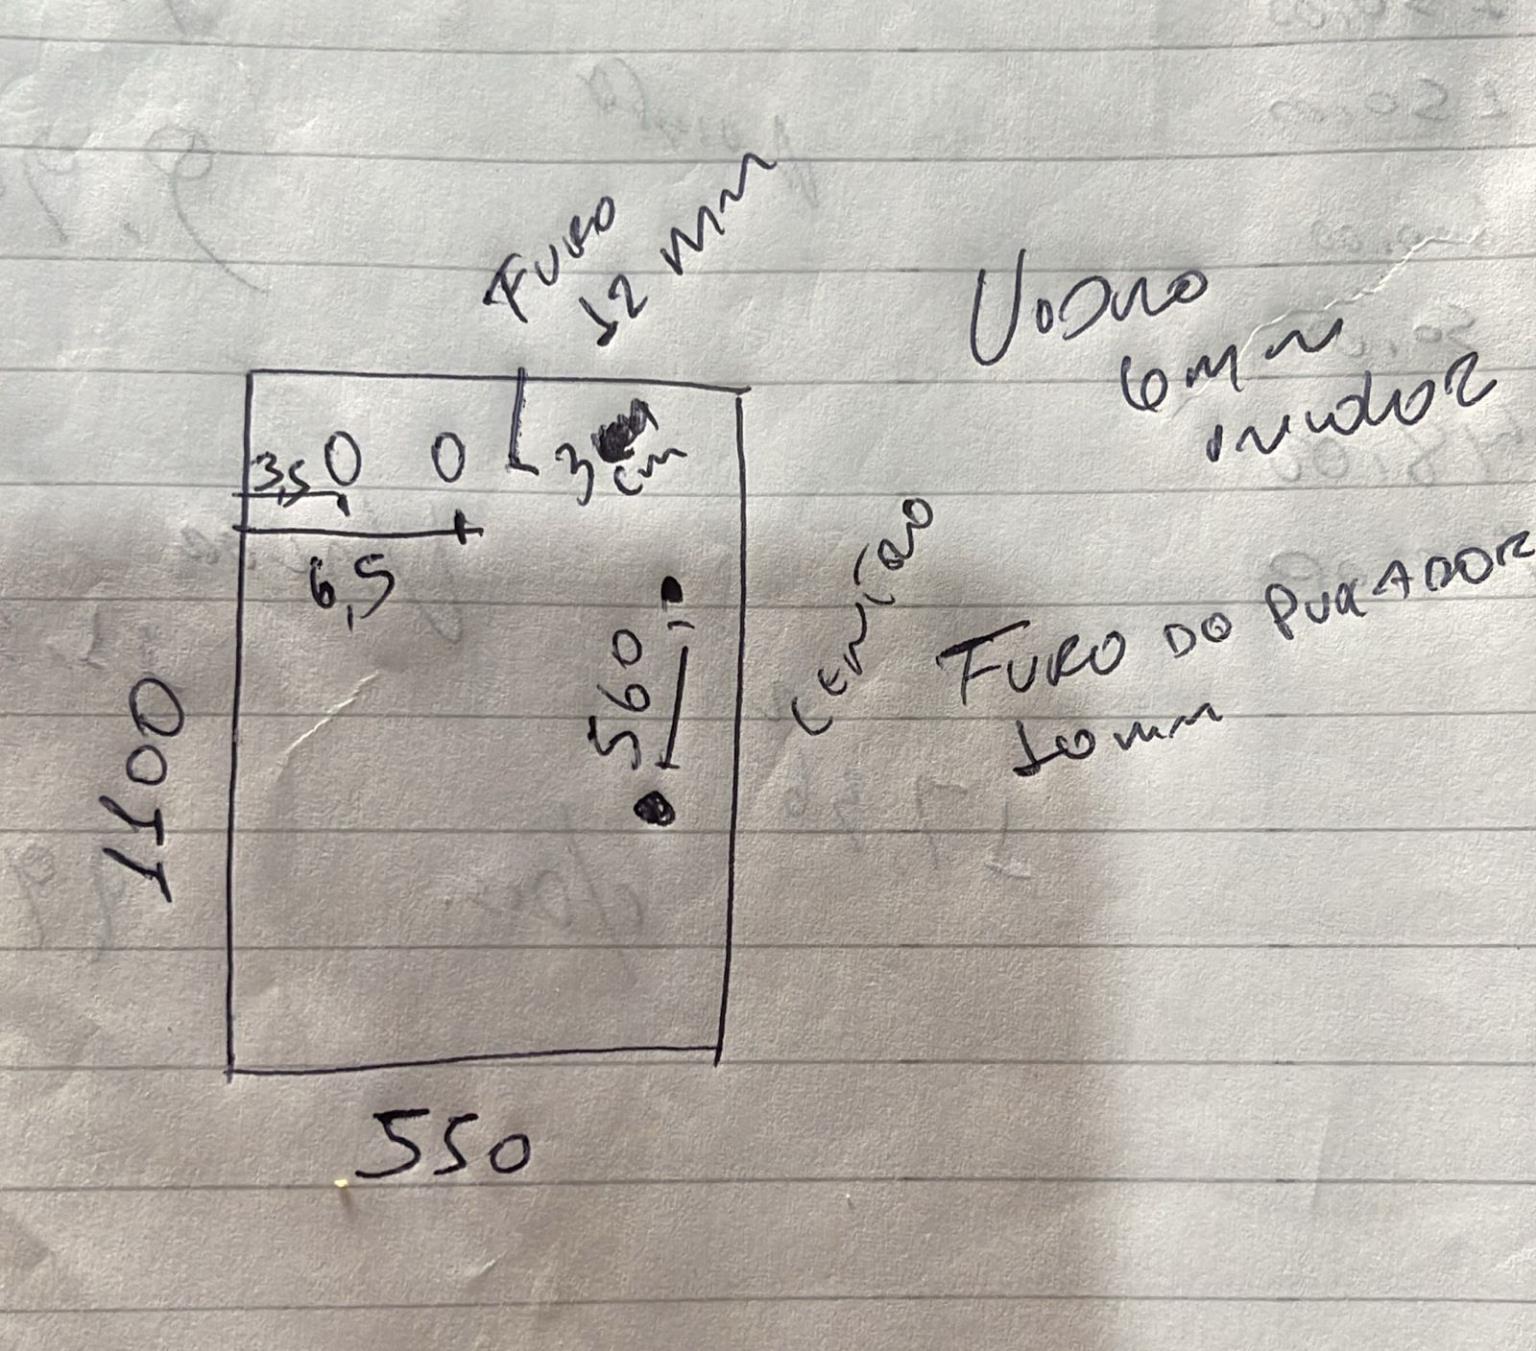 FURO
12 mm
Vidro
6mm
incolor
3,5
3
cm
6,5
560
CENTRO
FURO DO PUXADOR
10mm
1100
550